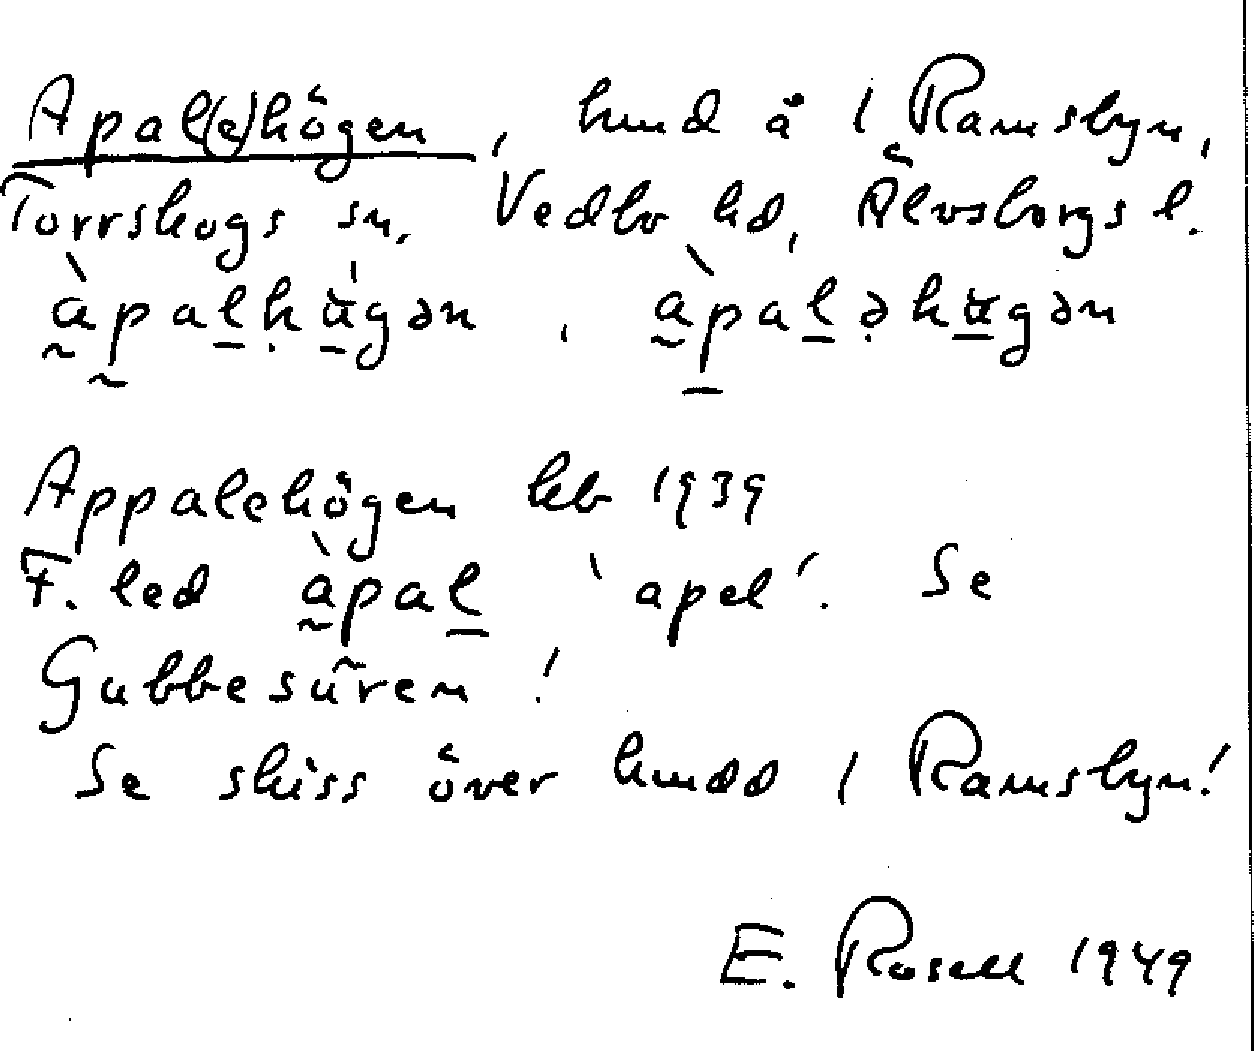 Apal(e)högen, hmd å i Ramsbyn,
Torrskogs sn, Vedbo hd, Älvsborgs l.
àpalhøgən, àpaləhøgən
Appalehögen kb 1939
F. led àpal 'apel'. Se
Gubbesuren!
Se skiss över hmdd i Ramsbyn!
E. Rosell 1949